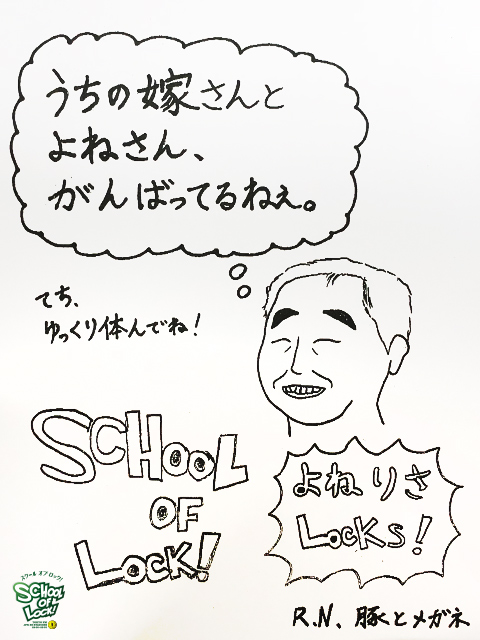 うちの嫁さんと
よねさん、
がんばってるねぇ。
てち、
ゆっくり体んでね!
SCHOOL
OF
LOCK!
よねりさ
LOCKS!
スクール オブ ロック!
SCHOOL
OF
LOCK!
R.N. 豚とメガネ